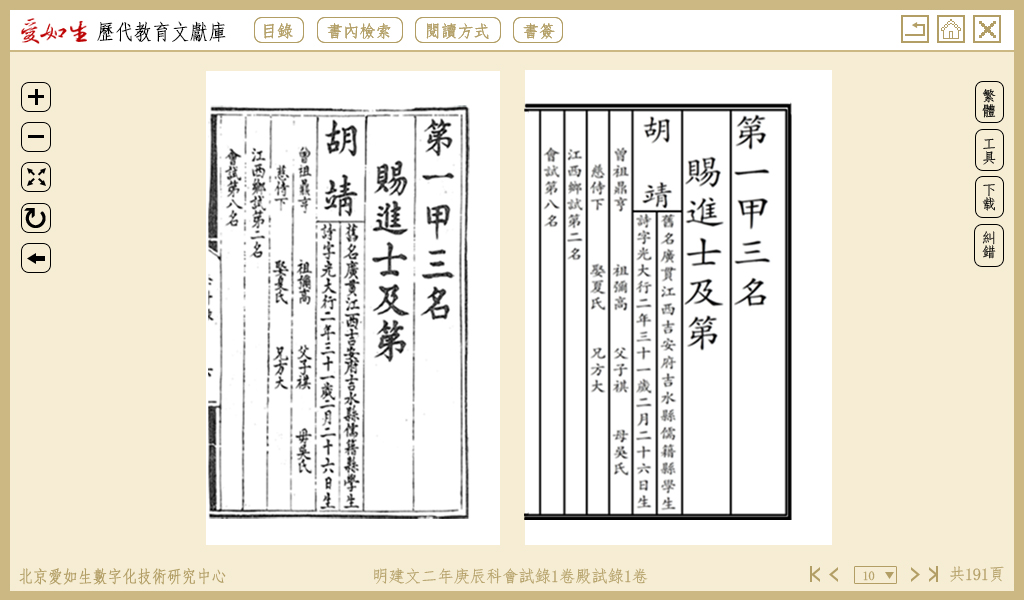 愛如生 歷代教育文獻庫
目錄
書內檢索
閱讀方式
書簽
繁體
工具
下载
糾錯
第一甲三名
賜進士及第
胡靖
舊名廣貫江西吉安府吉水縣儒籍縣學生
詩字光大行二年三十一歲二月二十六日生
曾祖鼎亨 祖彌高 父子祺 母吳氏
慈侍下 娶夏氏 兄方大
江西鄉試第二名
會試第八名
第一甲三名
賜進士及第
胡靖
舊名廣貫江西吉安府吉水縣儒籍縣學生
詩字光大行二年三十一歲二月二十六日生
曾祖鼎亨 祖彌高 父子祺 母吳氏
慈侍下 娶夏氏 兄方大
江西鄉試第二名
會試第八名
北京愛如生數字化技術研究中心
明建文二年庚辰科會試錄1卷殿試錄1卷
10
共191頁